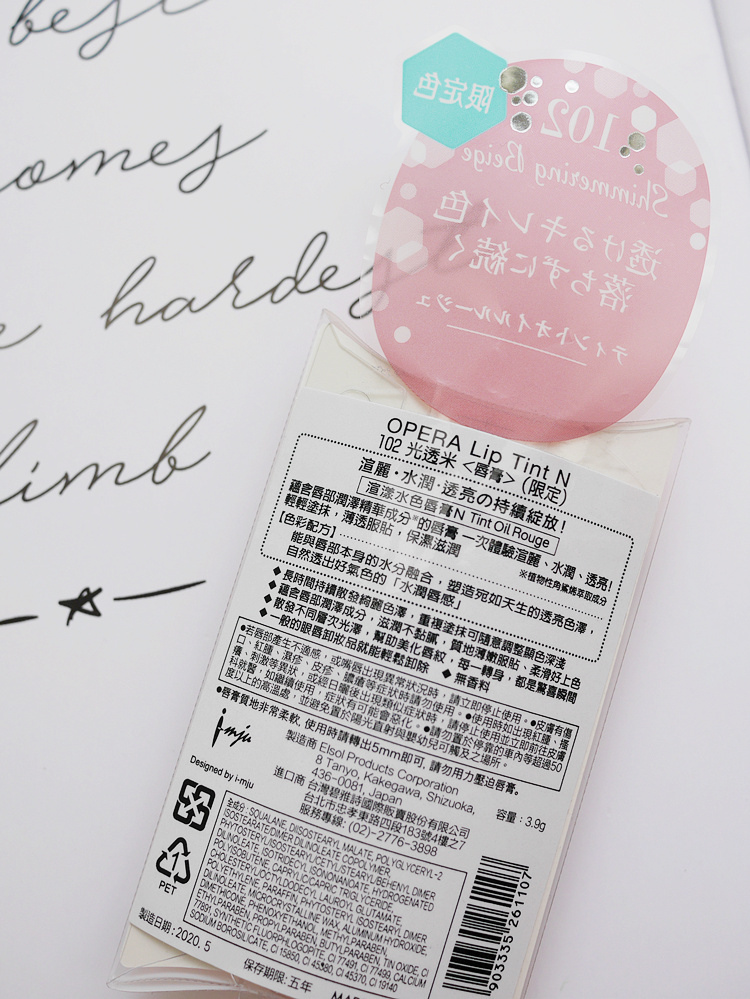 best
omes
hardest
limb
限定色
102
Shimmering Beige
透けるキレイ色
落ちずに続く
ティントオイルルージュ
OPERA Lip Tint N
102 光透米 <唇膏> (限定)
渲麗・水潤・透亮の持續綻放!
渲漾水色唇膏N Tint Oil Rouge
蘊含唇部潤澤精華成分※的唇膏 一次體驗渲麗、水潤、透亮!
輕輕塗抹,薄透服貼,保濕滋潤
※植物性角鯊烯萃取成分
【色彩配方】
能與唇部本身的水分融合,塑造宛如天生的透亮色澤,
自然透出好氣色的「水潤唇感」
◆長時間持續散發絢麗色澤,重複塗抹可隨意調整顯色深淺
◆蘊含唇部潤澤成分,滋潤不黏膩,質地薄嫩服貼、柔滑好上色
◆散發不同層次光澤,幫助美化唇紋,每一轉身,都是驚喜瞬間
◆一般的眼唇卸妝品就能輕鬆卸除 ◆無香料
●若唇部產生不適感,或嘴唇出現異常狀況時,請立即停止使用。●皮膚有傷
口、紅腫、濕疹、皮疹、膿瘡等症狀時請勿使用。●使用時如出現紅腫、搔
癢、刺激等異狀,或經日曬後出現類似症狀時,請停止使用並立即前往皮膚
科就醫,如繼續使用,症狀有可能會惡化。●請勿置於停靠的車內等超過50
度以上的高溫處,並避免置於陽光直射與嬰幼兒可觸及之場所。
●唇膏質地非常柔軟, 使用時請轉出5mm即可, 請勿用力壓迫唇膏。
i-mju
Designed by i-mju
製造商 Elsol Products Corporation
8 Tanyo, Kakegawa, Shizuoka,
436-0081, Japan
進口商 台灣碧雅詩國際販賣股份有限公司
台北市忠孝東路四段183號4樓之7
服務專線: (02)-2776-3898
容量:3.9g
PET
全成分:SQUALANE, DIISOSTEARYL MALATE, POLYGLYCERYL-2
ISOSTEARATE/DIMER DILINOLEATE COPOLYMER,
PHYTOSTERYL/ISOSTEARYL/CETYL/STEARYL/BEHENYL DIMER
DILINOLEATE, ISOTRIDECYL ISONONANOATE, HYDROGENATED
POLYISOBUTENE, CAPRYLIC/CAPRIC TRIGLYCERIDE,
CHOLESTERYL/OCTYLDODECYL LAUROYL GLUTAMATE,
POLYETHYLENE, PARAFFIN, PHYTOSTERYL ISOSTEARYL DIMER
DILINOLEATE, MICROCRYSTALLINE WAX, ALUMINUM HYDROXIDE,
DIMETHICONE, PHENOXYETHANOL, METHYLPARABEN,
ETHYLPARABEN, PROPYLPARABEN, BUTYLPARABEN, TIN OXIDE, CI
77891, SYNTHETIC FLUORPHLOGOPITE, CI 77491, CI 77499, CALCIUM
SODIUM BOROSILICATE, CI 15850, CI 45380, CI 45370, CI 19140
903335 261107
製造日期:2020. 5
保存期限: 五年